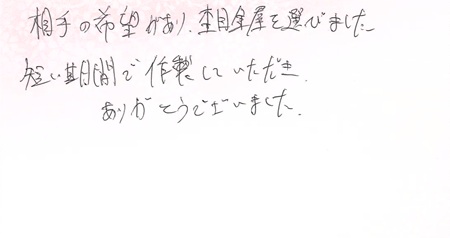 相手の希望があり、杢目金屋を選びました
短い期間で作製していただき、
ありがとうございました。